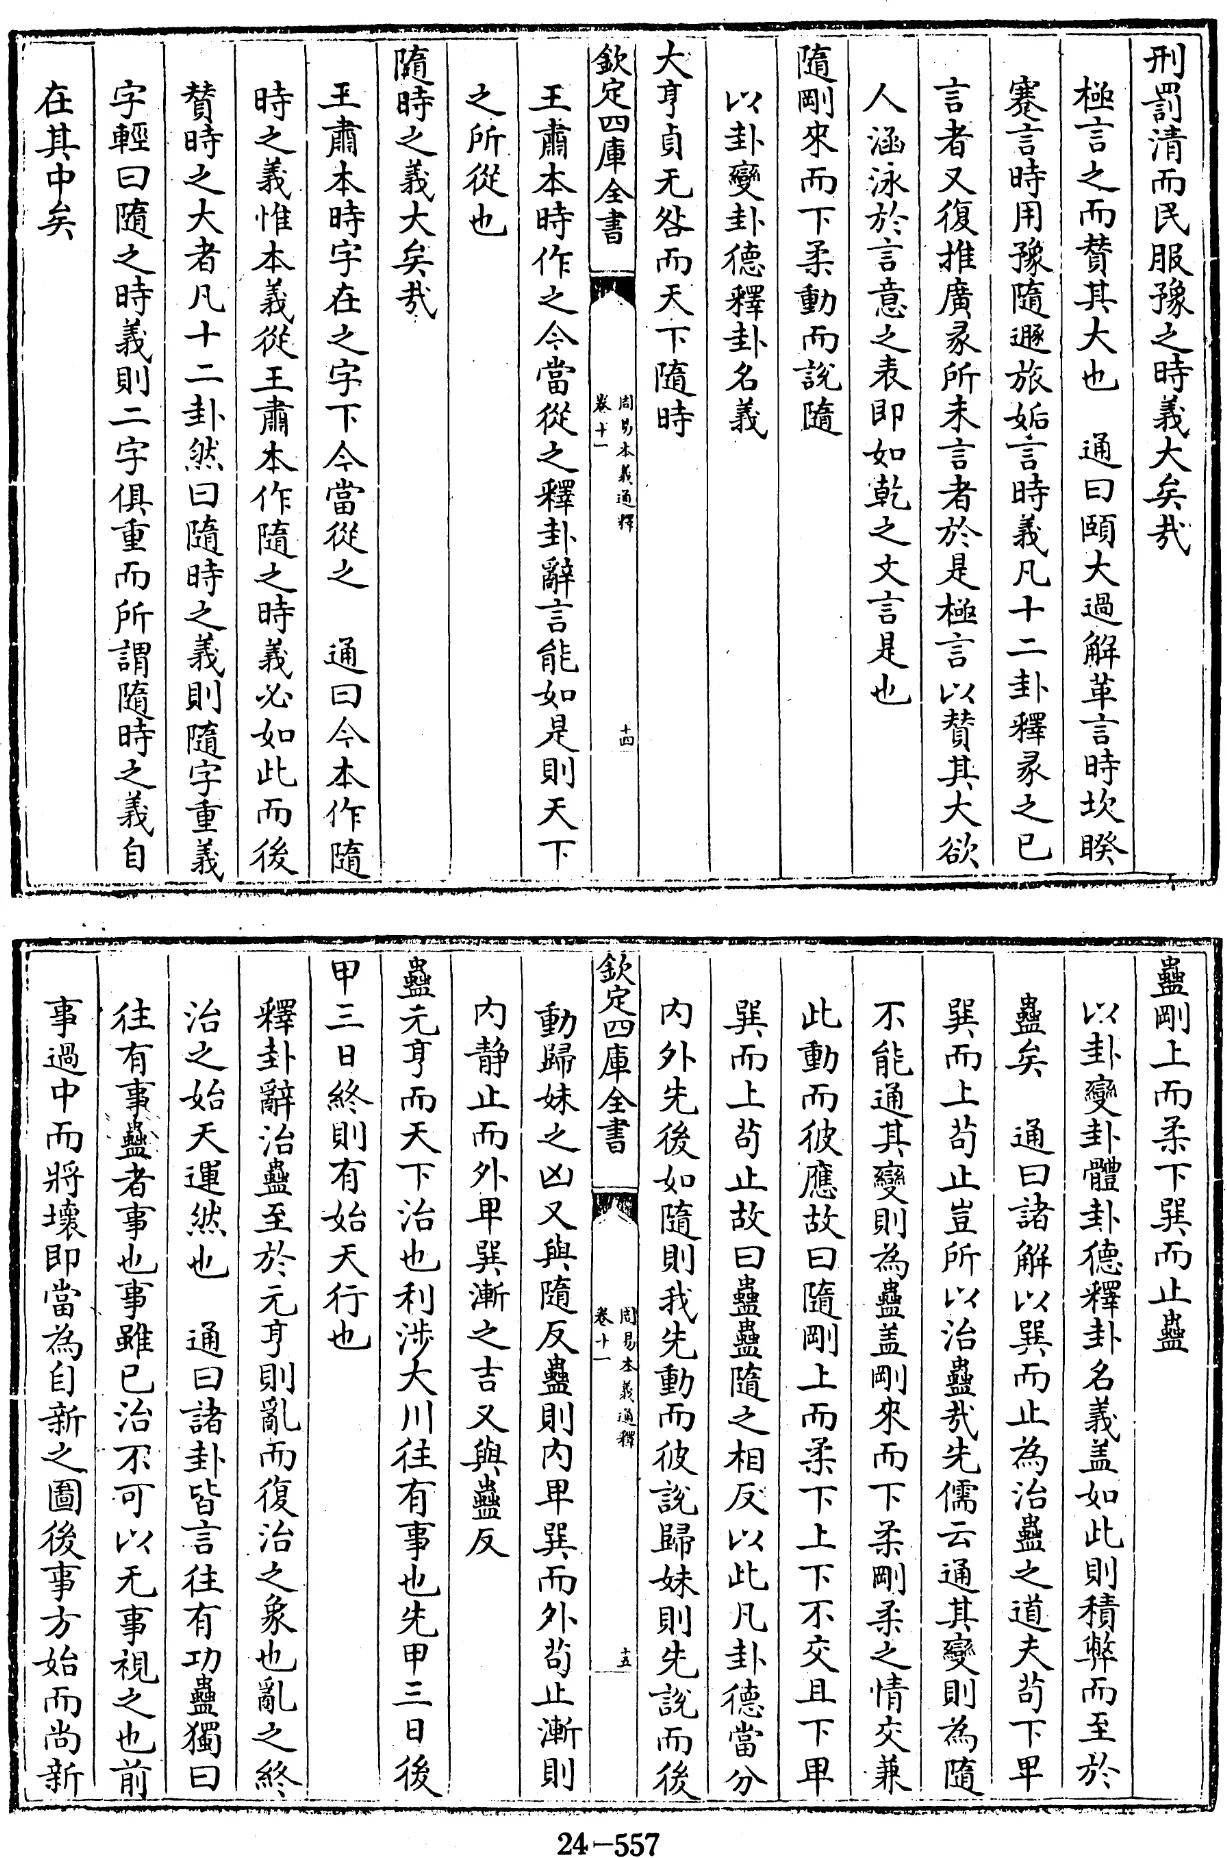 刑罰清而民服豫之時義大矣哉
極言之而贊其大也　通曰頤大過解革言時坎睽
蹇言時用豫隨遯旅姤言時義凡十二卦釋彖之已
言者又復推廣彖所未言者於是極言以贊其大欲
人涵泳於言意之表即如乾之文言是也
隨剛來而下柔動而說隨
以卦變卦德釋卦名義
大亨貞无咎而天下隨時
欽定四庫全書
周易本義通釋
卷十一
十四
王肅本時作之今當從之釋卦辭言能如是則天下
之所從也
隨時之義大矣哉
王肅本時字在之字下今當從之　通曰今本作隨
時之義惟本義從王肅本作隨之時義必如此而後
贊時之大者凡十二卦然曰隨時之義則隨字重義
字輕曰隨之時義則二字俱重而所謂隨時之義自
在其中矣
蠱剛上而柔下巽而止蠱
以卦變卦體卦德釋卦名義盖如此則積弊而至於
蠱矣　通曰諸解以巽而止為治蠱之道夫茍下卑
巽而上茍止豈所以治蠱哉先儒云通其變則為隨
不能通其變則為蠱盖剛來而下柔剛柔之情交兼
此動而彼應故曰隨剛上而柔下上下不交且下卑
巽而上茍止故曰蠱蠱隨之相反以此凡卦德當分
内外先後如隨則我先動而彼說歸妹則先說而後
欽定四庫全書
周易本義通釋
卷十一
十五
動歸妹之凶又與隨反蠱則内卑巽而外茍止漸則
内靜止而外卑巽漸之吉又與蠱反
蠱元亨而天下治也利涉大川往有事也先甲三日後
甲三日終則有始天行也
釋卦辭治蠱至於元亨則亂而復治之象也亂之終
治之始天運然也　通曰諸卦皆言往有功蠱獨曰
往有事蠱者事也事雖已治不可以无事視之也前
事過中而將壞即當為自新之圖後事方始而尚新
24-557